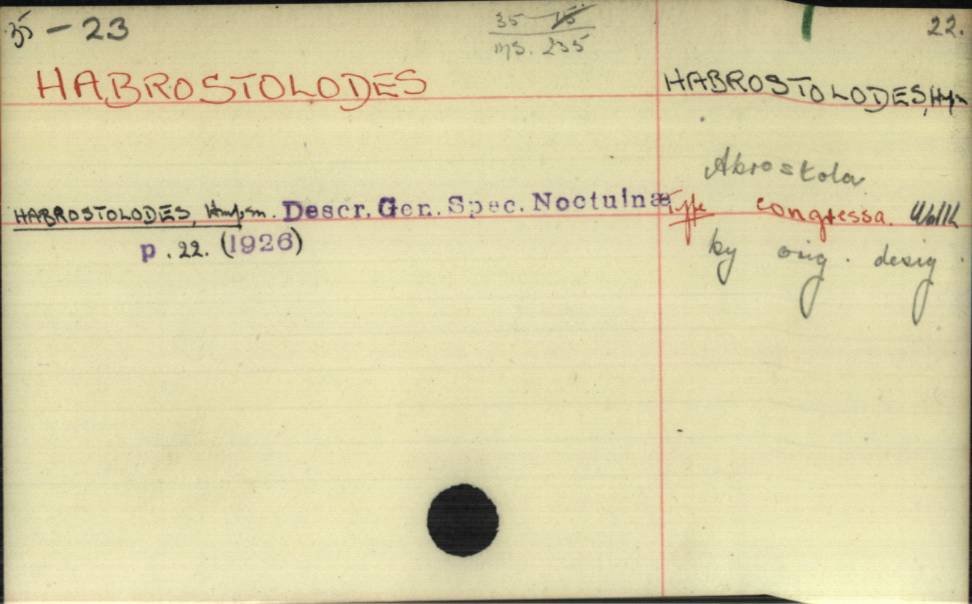 35 - 23
35 15
MS. 235
22.
HABROSTOLODES
HABROSTOLODES, Hmpsn
Abrostola
HABROSTOLODES, Hmpsn. Descr. Gen. Spec. Noctuinæ
p. 22. (1926)
Type congressa. Walk
by orig. desig.